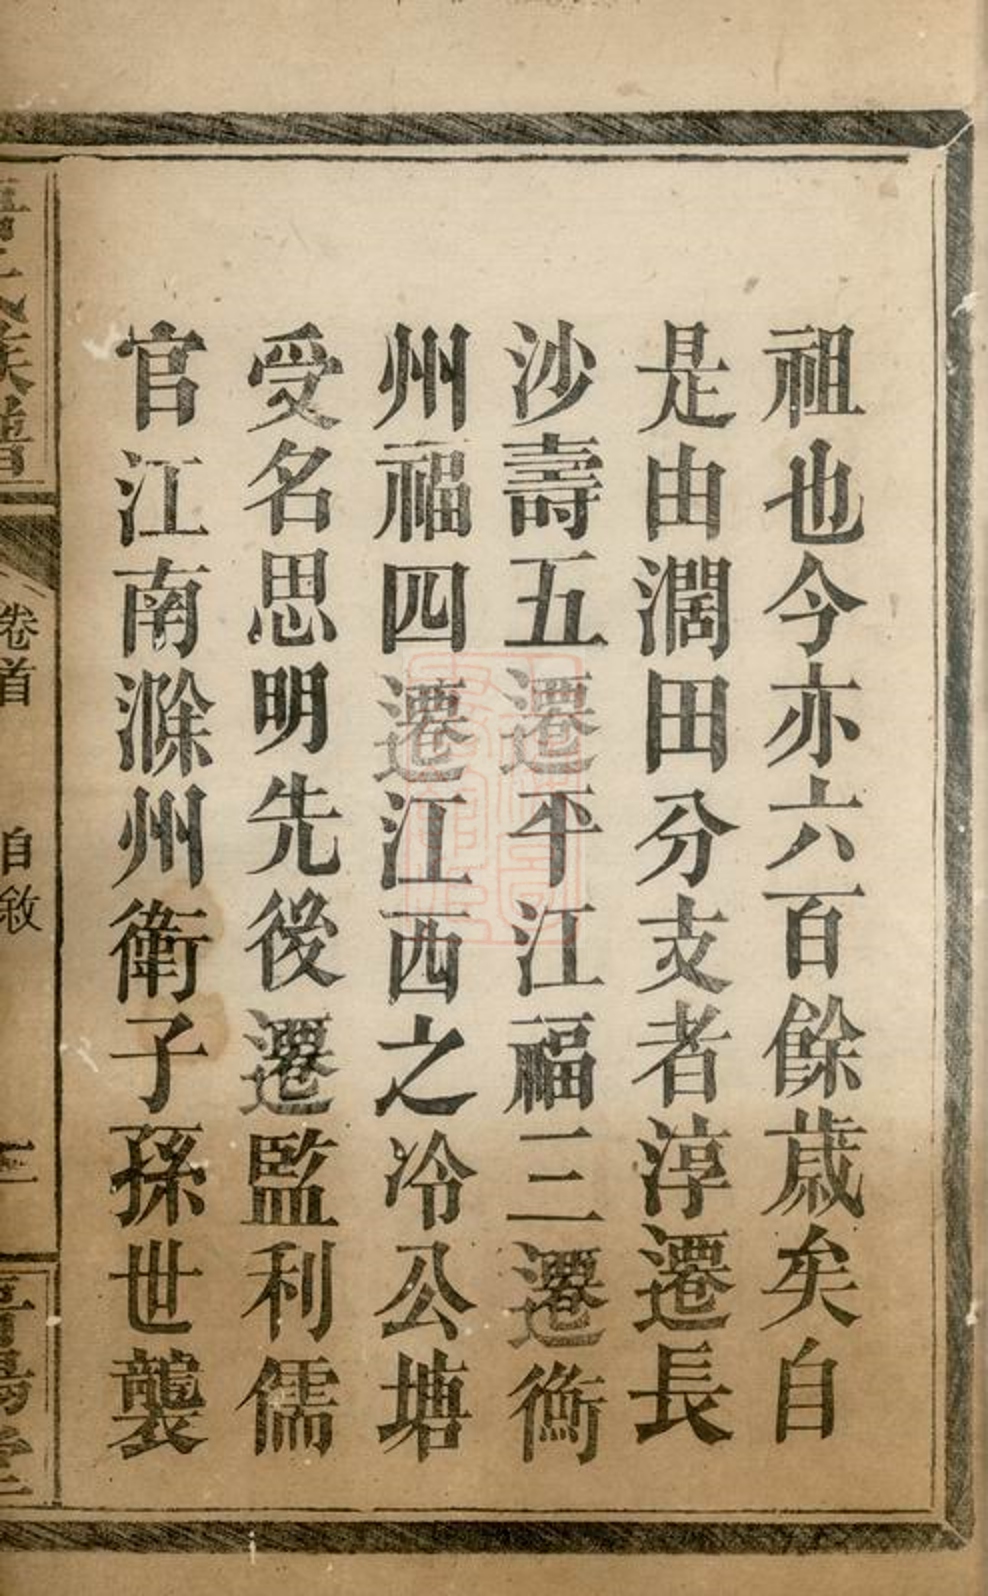 祖也今亦六百餘歲矣自
是由濶田分支者淳遷長
沙壽五遷平江福三遷衡
州福四遷江西之冷公塘
受名思明先後遷監利儒
官江南滁州衛子孫世襲
氏族譜
卷首
自敘